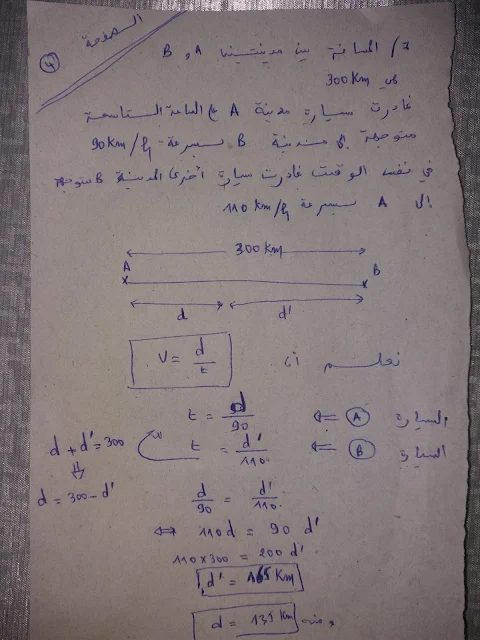 الصفحة
4
7/ المسافة بين مدينتين A و B
هي 300 Km
غادرت سيارة مدينة A على الساعة التاسعة
متوجهة إلى مدينة B بسرعة 90 Km/h
في نفس الوقت غادرت سيارة أخرى المدينة B متوجهة
إلى A بسرعة 110 Km/h
300 Km
A B
d d'
نعلم أن V = d/t
السيارة A ⇐ t = d/90
السيارة B ⇐ t = d'/110
d + d' = 300
⇓
d = 300 - d'
d/90 = d'/110
⇔ 110 d = 90 d'
110 × 300 = 200 d'
d' = 165 Km
ومنه d = 135 Km